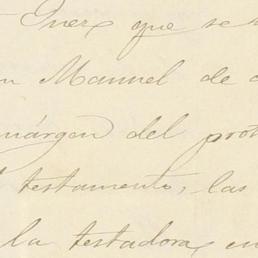 que se
Manuel de
márgen del prot
testamento, las
la testadora en